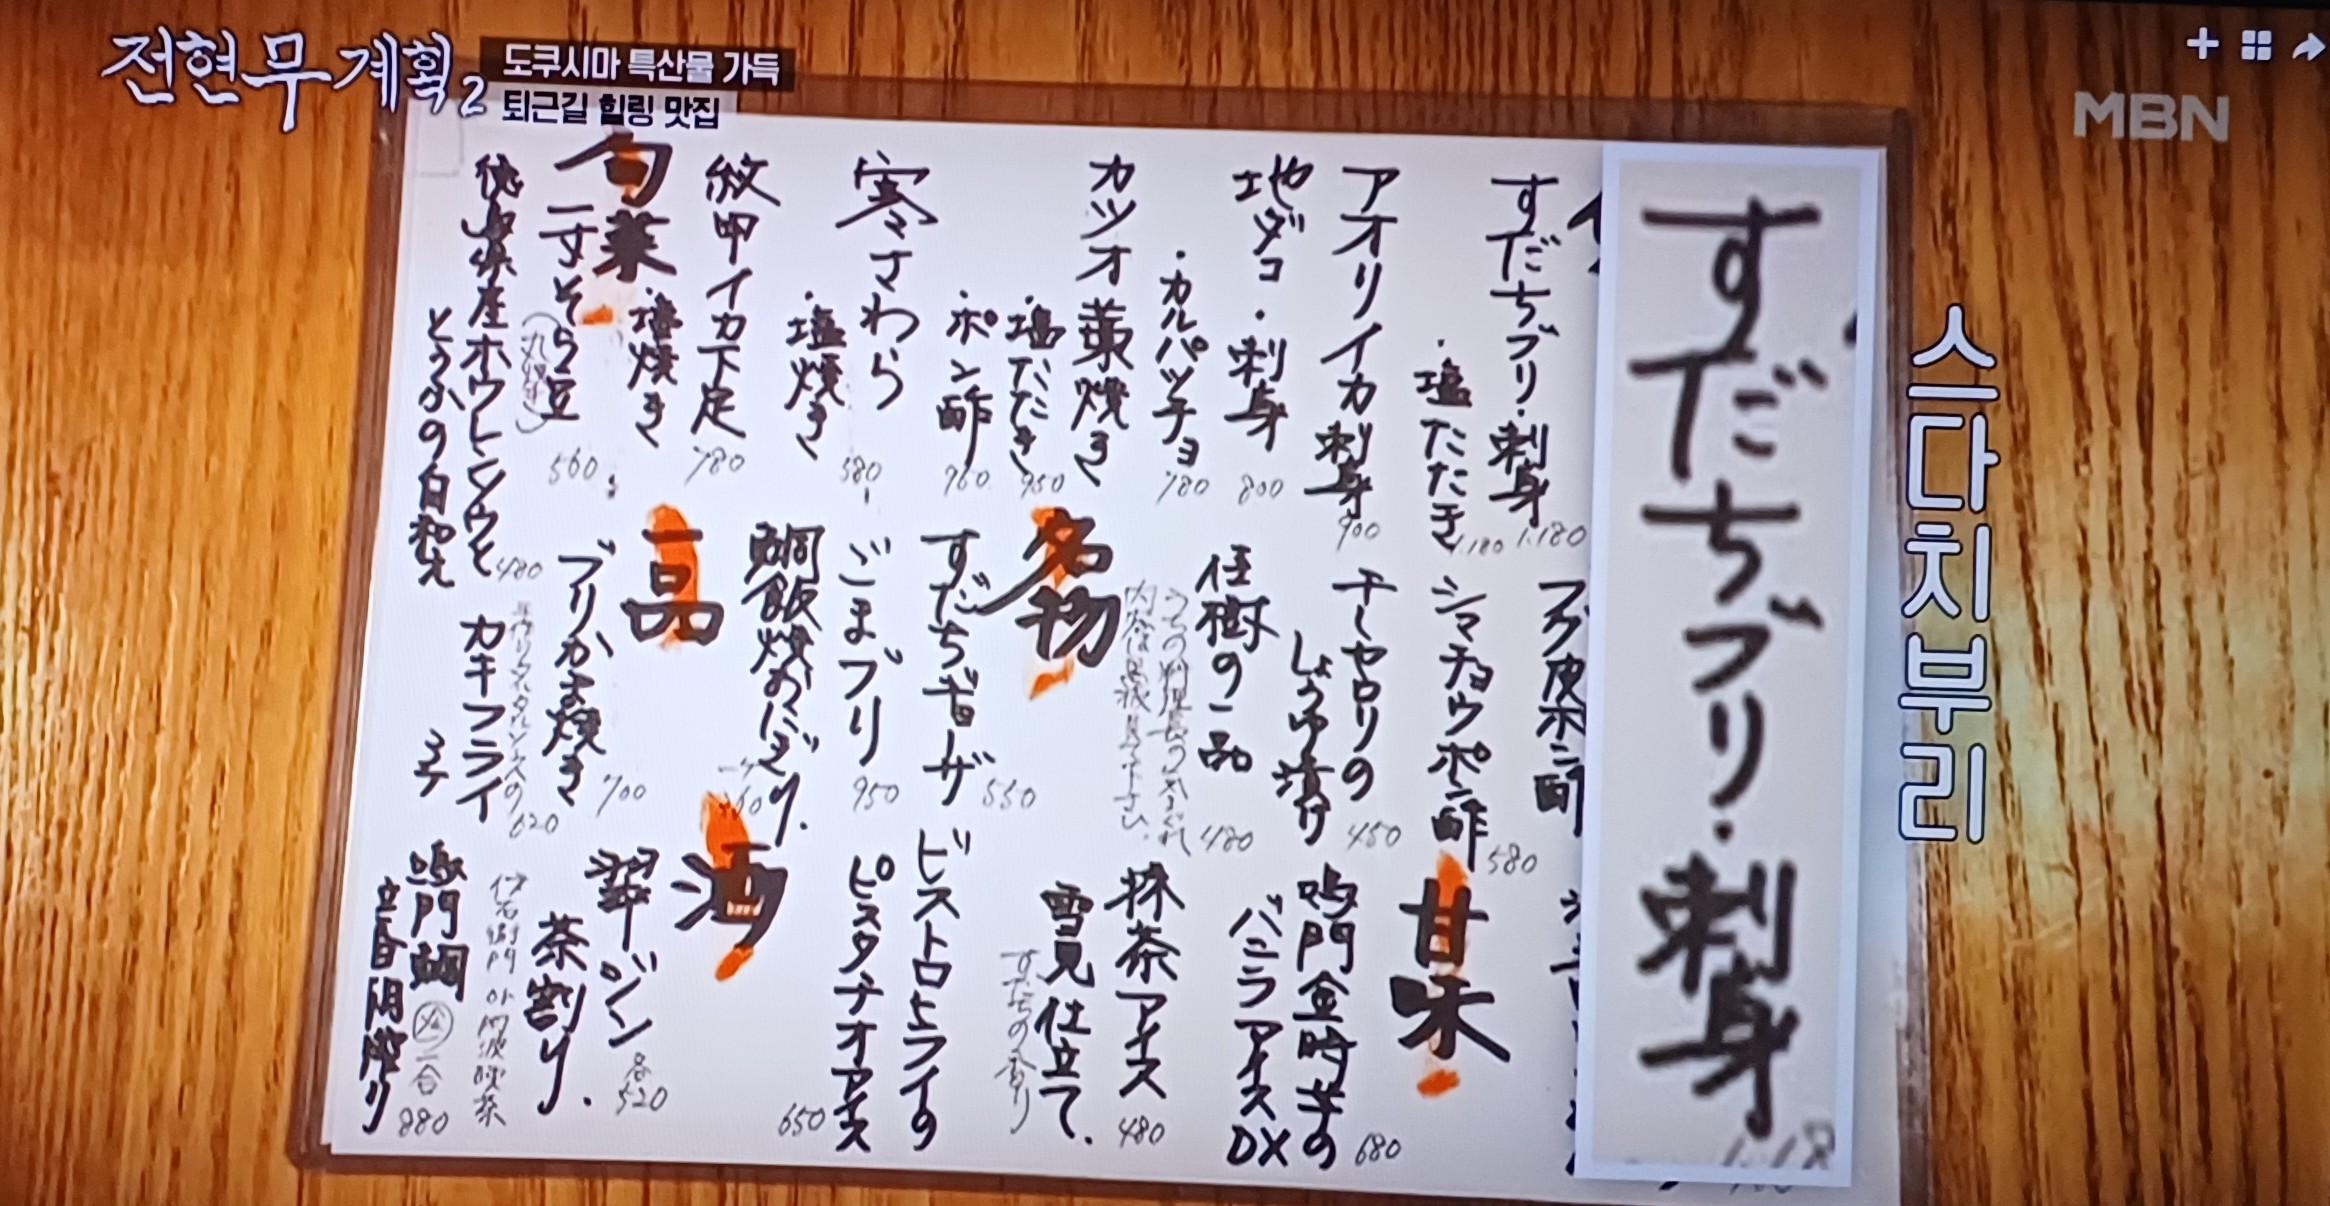 전현무계획2
도쿠시마 특산물 가득
퇴근길 힐링 맛집
MBN
すだちブリ・刺身
스다치부리
すだちブリ・刺身 1.180
・塩たたき 1.180
アオリイカ刺身 900
地ダコ・刺身 800
・カルパッチョ 780
カツオ藁焼き
・塩たたき 950
・ポン酢 960
寒さわら
・塩焼き 580
紋甲イカ下足 780
・塩焼き
旬菜
一寸そら豆 560
徳島県産ホウレンソウと
とうふの白和え 480
フグ皮ポン酢
シマチョウポン酢 580
チーセロリの
しょうゆ漬け 450
佳樹の一品 480
うちの料理長の気まぐれ
内容は黒板見て下さい
名物
すだちギョーザ 550
ごまブリ 950
鯛飯焼おにぎり.
一品
ブリかま焼き 700
カキフライ 620
甘味
鳴門金時芋の
バニラアイスDX 680
抹茶アイス 480
雪見仕立て.
すだちの香り
ビストロトライの
ピスタチオアイス 650
酒
翠ジン
茶割り. 各520
鳴門鯛 二合
立春朝搾り 880